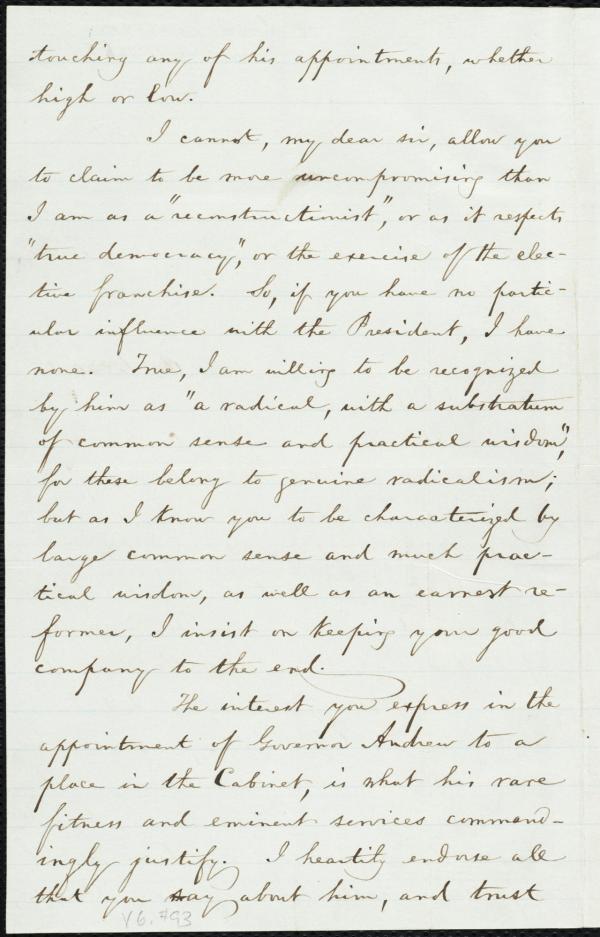 touching any of his appointments, whether
high or low.
I cannot, my dear sir, allow you
to claim to be more uncompromising than
I am as a "reconstructionist", or as it respects
"true democracy", or the exercise of the elec-
tive franchise. So, if you have no partic-
ular influence with the President, I have
none. True, I am willing to be recognized
by him as "a radical, with a substratum
of common sense and practical wisdom",
for these belong to genuine radicalism;
but as I know you to be characterized by
large common sense and much prac-
tical wisdom, as well as an earnest re-
former, I insist on keeping your good
company to the end.
The interest you express in the
appointment of Governor Andrew to a
place in the Cabinet, is what his rare
fitness and eminent services command-
ingly justify. I heartily endorse all
that you say about him, and trust
V6. #93